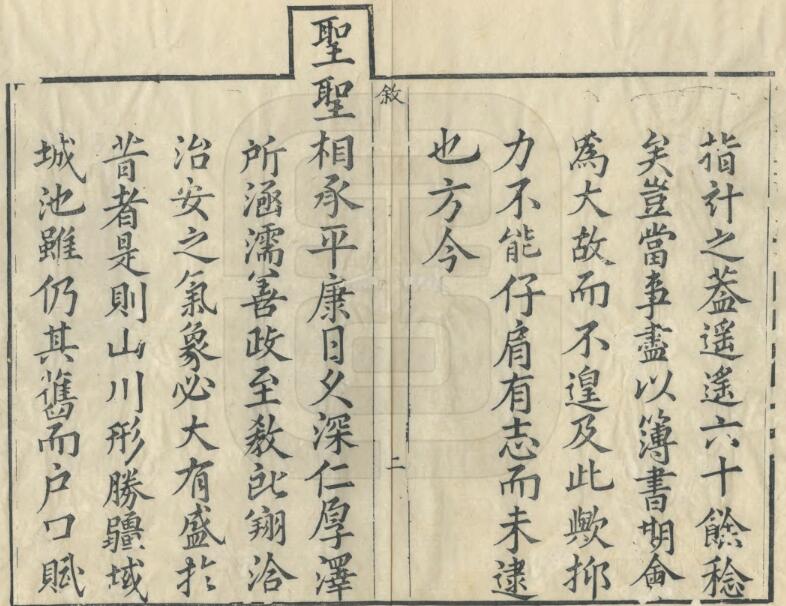 指計之葢遥遥六十餘稔
矣豈當事盡以簿書期會
爲大故而不遑及此歟抑
力不能仔肩有志而未逮
也方今
敘
二
聖聖相承平康日久深仁厚澤
所涵濡善政至敎所翔洽
治安之氣象必大有盛於
昔者是則山川形勝疆域
城池雖仍其舊而户口賦